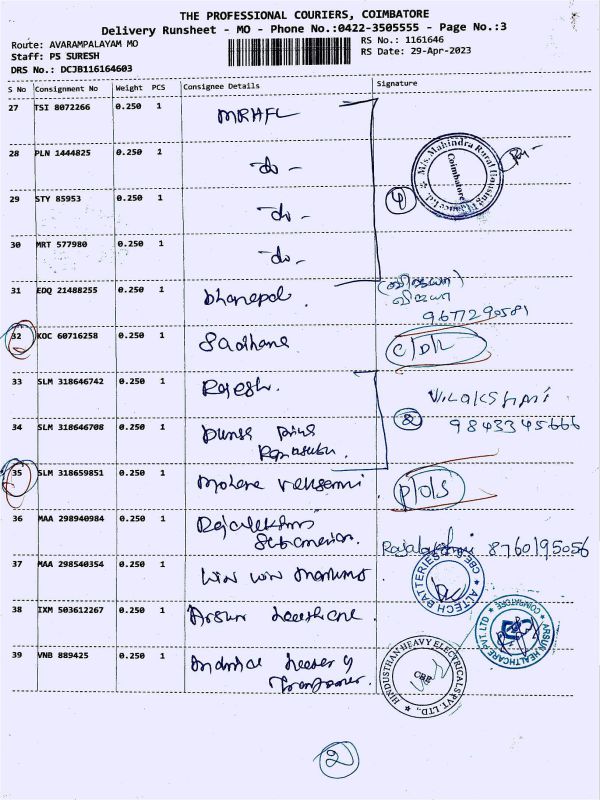 THE PROFESSIONAL COURIERS, COIMBATORE
Delivery Runsheet - MO - Phone No.:0422-3505555 - Page No.:3
Route: AVARAMPALAYAM MO
RS No.: 1161646
Staff: P5 SURESH
RS Date: 29-Apr-2023
DRS No.: DCJB116164603
S No Consignment No Weight PCS Consignee Details Signature
27 TSI 8072266 0.250 1 MRHFL
M/s. Mahindra Rural Housing Finance Ltd.
Coimbatore
28 PLN 1444825 0.250 1 do-
29 STY 85953 0.250 1 do-
4
30 MRT 577980 0.250 1 do-
31 EDQ 21488255 0.250 1 Dhanapal.
விஜயா
9677290581
32 KOC 60716258 0.250 1 Sadhana
C/D/L
33 SLM 318646742 0.250 1 Rajesh.
34 SLM 318646708 0.250 1
2
9843345666
35 SLM 318659851 0.250 1 Mohana
P/O/S
36 MAA 298940984 0.250 1 Rajalakshmi
Rajalakshmi 8760195056
37 MAA 298540354 0.250 1 Win Win
ALTECH BATTERIES CBE
38 IXM 503612267 0.250 1 Arsun
ARSUN HEALTHCARE PVT. LTD COIMBATORE
39 VNB 889425 0.250 1
HINDUSTHAN HEAVY ELECTRICALS PVT. LTD.,
CBE
2